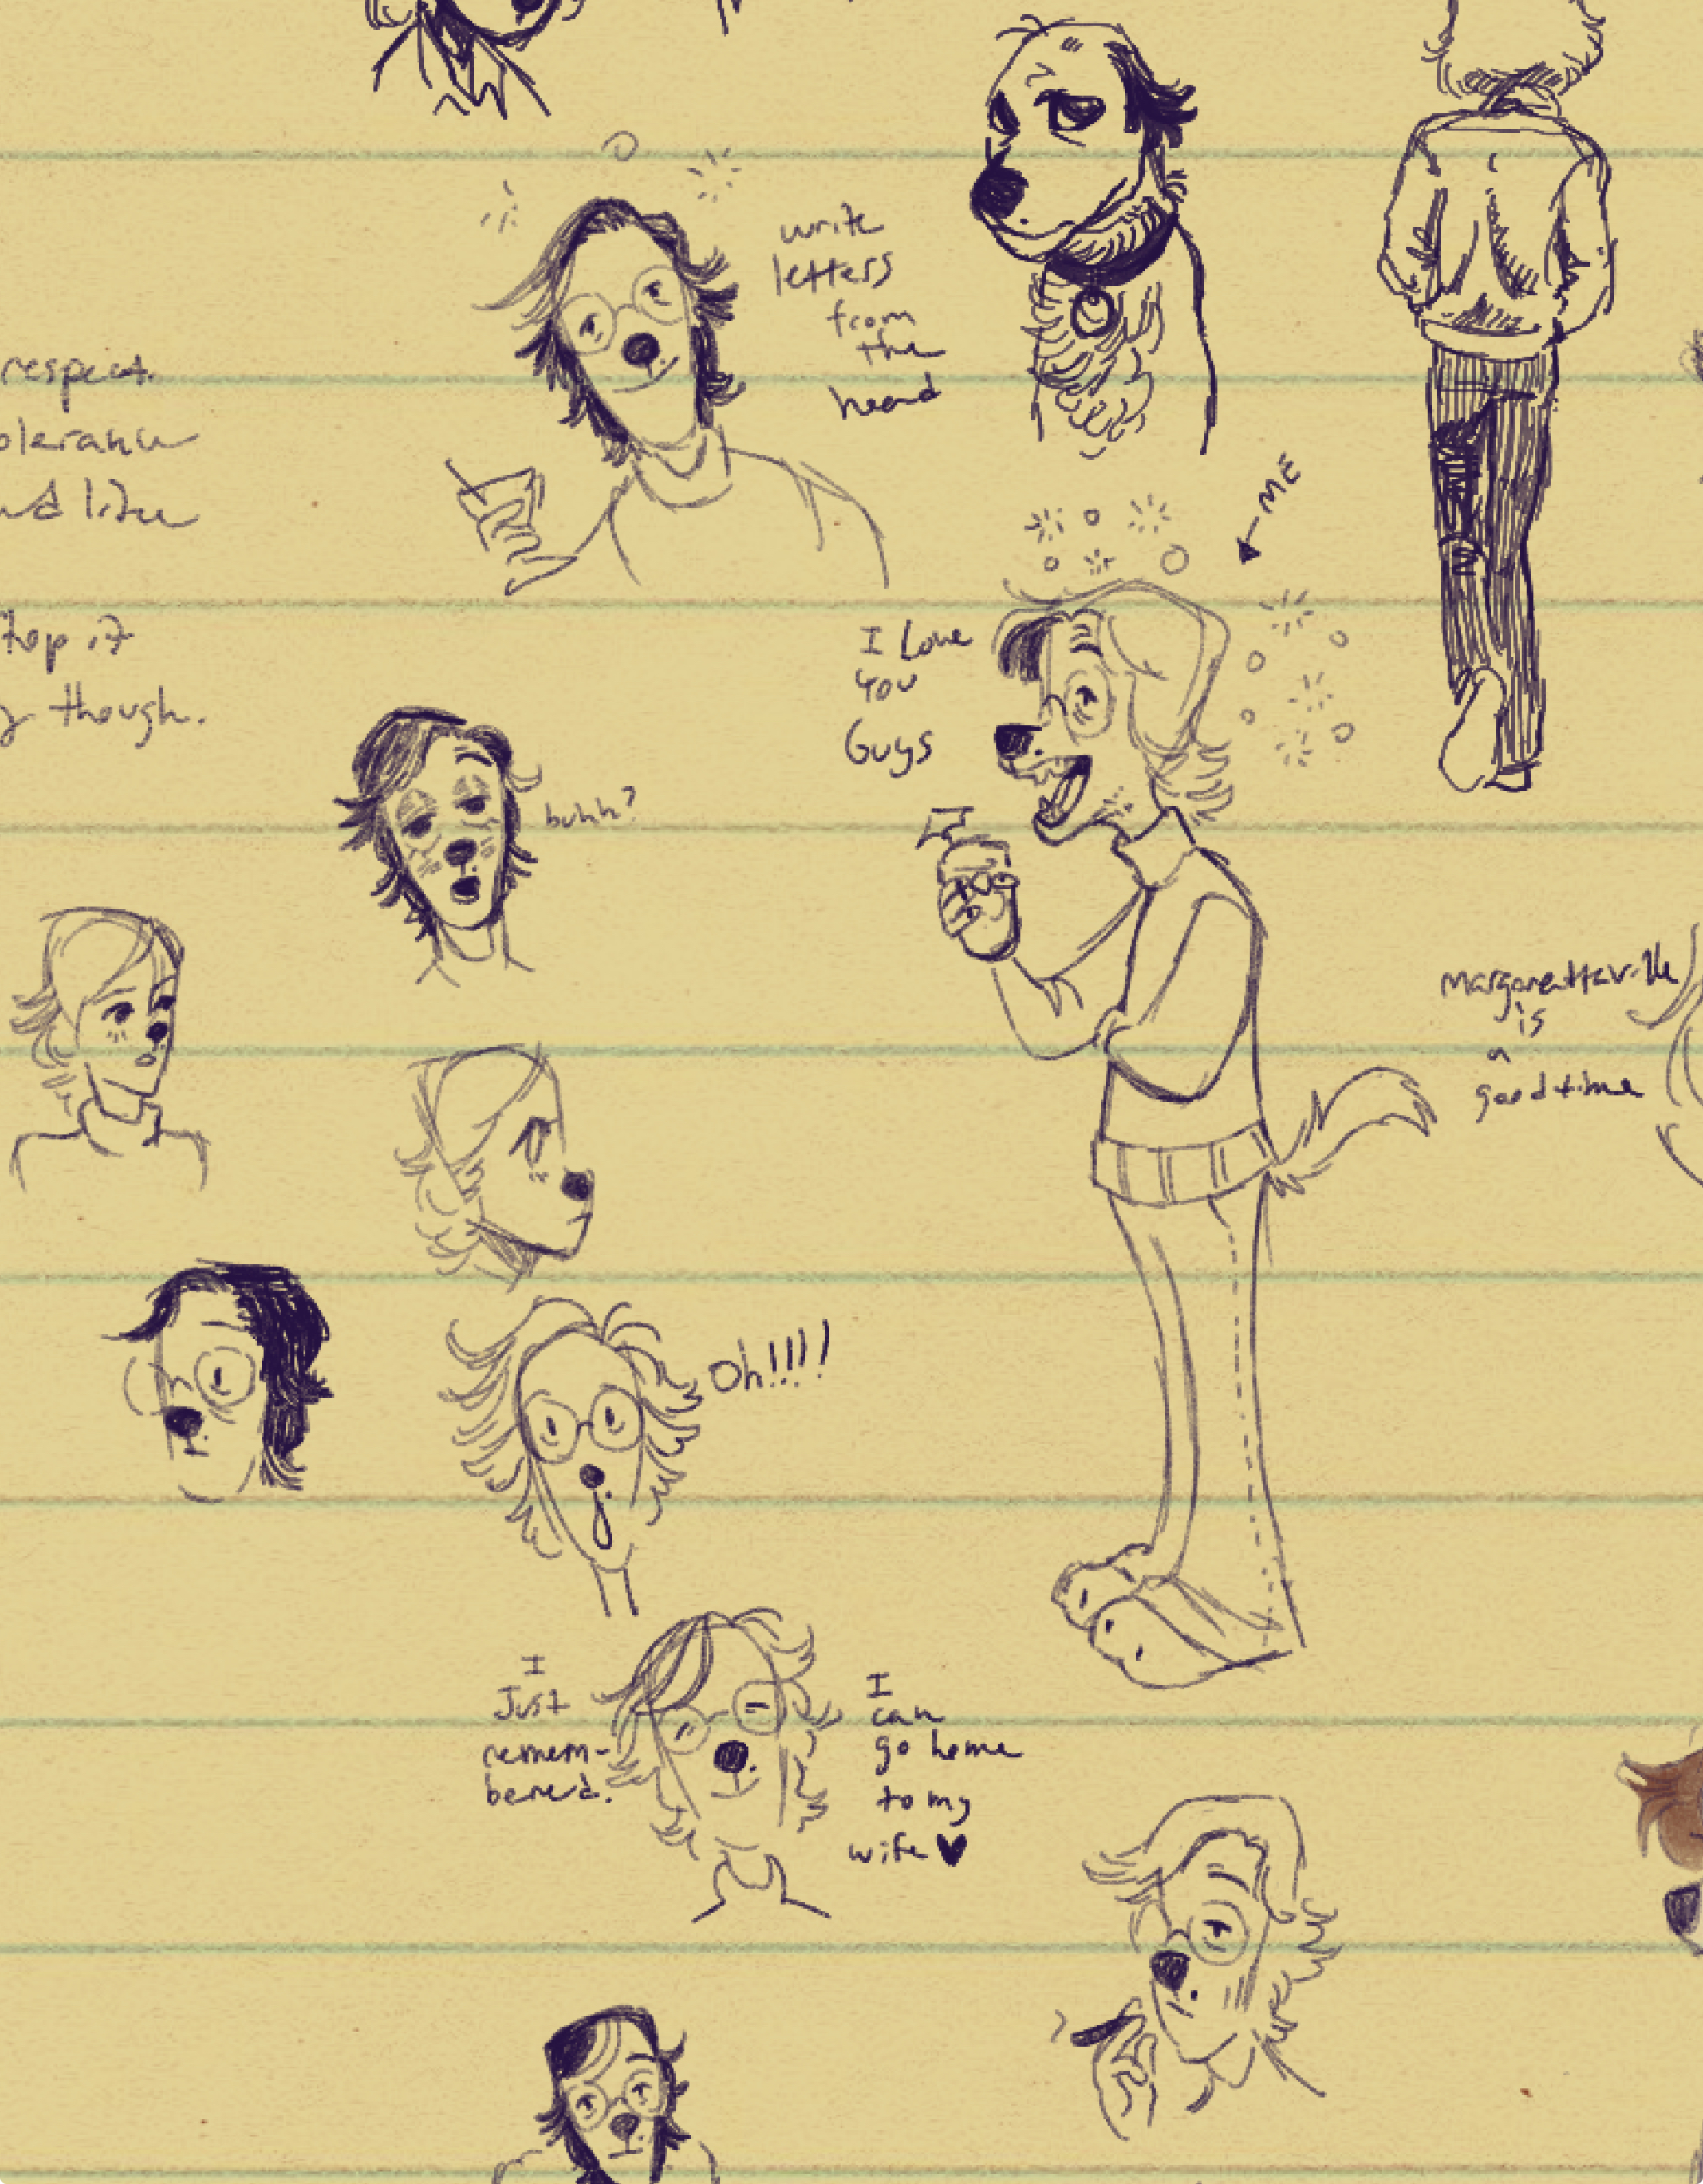 write
letters
from
the
head
respect.
olerance
nd like
← ME
I Love
You
Guys
top it
y though.
buhh?
margarettaville
is
a
good time
Oh!!!!
I
Just
remem-
bered.
I
can
go home
to my
wife ♥